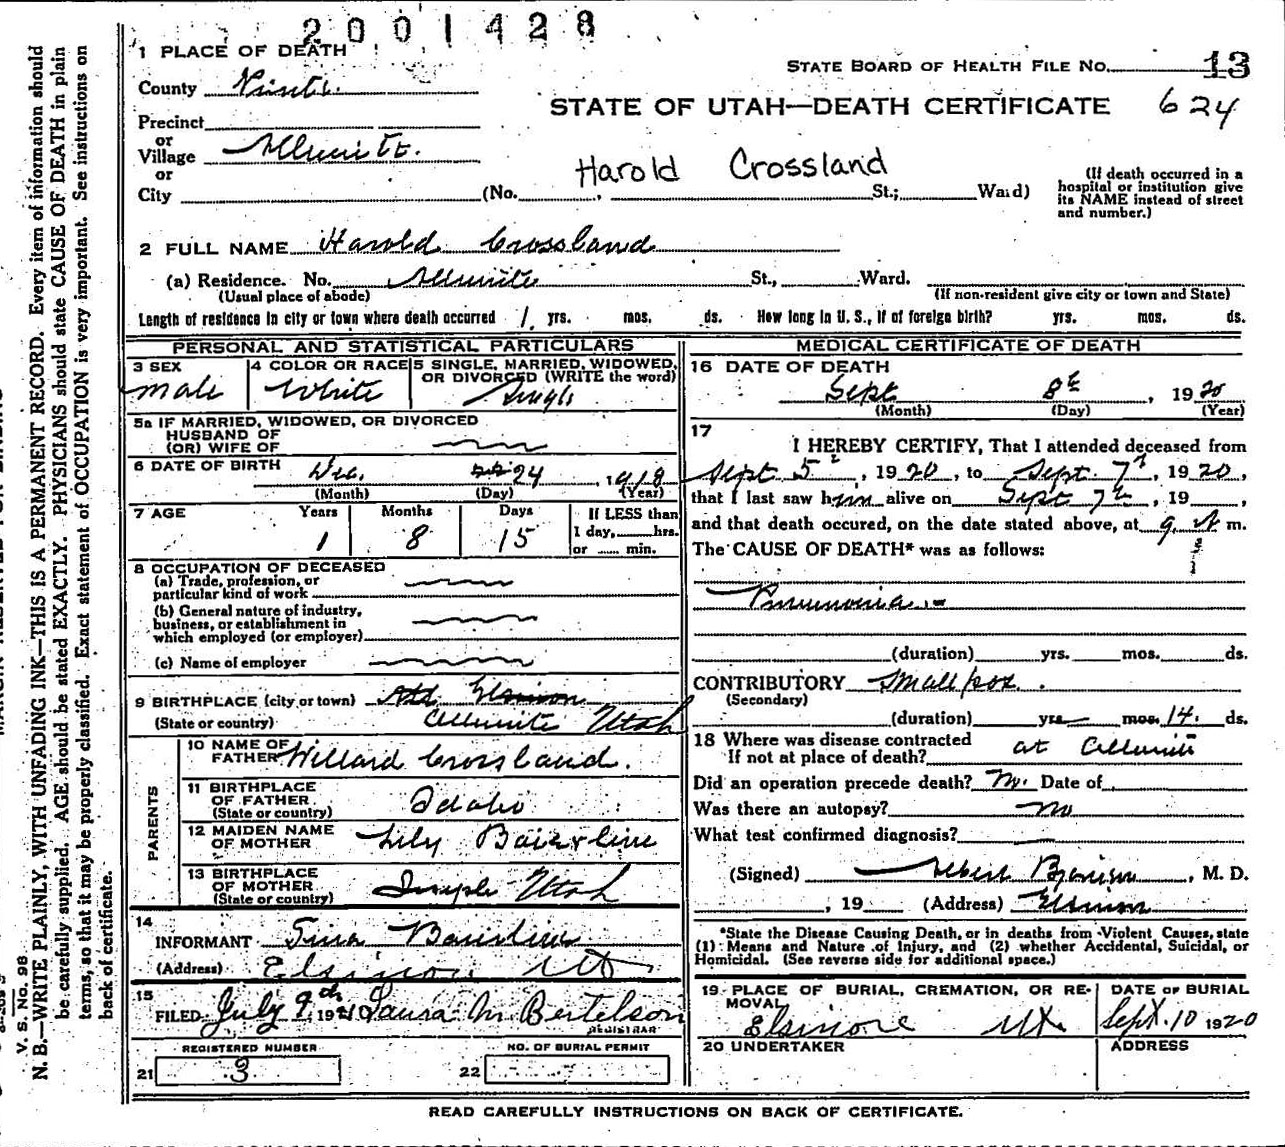 2001428
1 PLACE OF DEATH
STATE BOARD OF HEALTH FILE NO. 13
County
STATE OF UTAH—DEATH CERTIFICATE 624
Precinct
or
Village Allunite.
or
City (No. , Harold Crossland St.; Ward)
(If death occurred in a
hospital or institution give
its NAME instead of street
and number.)
2 FULL NAME Harold Crossland
(a) Residence. No. Allunite St., Ward.
(Usual place of abode) (If non-resident give city or town and State)
Length of residence in city or town where death occurred 1 yrs. mos. ds. How long in U. S., if of foreign birth? yrs. mos. ds.
PERSONAL AND STATISTICAL PARTICULARS
3 SEX
male
4 COLOR OR RACE
White
5 SINGLE, MARRIED, WIDOWED,
OR DIVORCED (WRITE the word)
Single
5a IF MARRIED, WIDOWED, OR DIVORCED
HUSBAND OF
(OR) WIFE OF
6 DATE OF BIRTH Dec. 24, 1918
(Month) (Day) (Year)
7 AGE Years Months Days If LESS than
1 8 15 1 day, hrs.
or min.
8 OCCUPATION OF DECEASED
(a) Trade, profession, or
particular kind of work
(b) General nature of industry,
business, or establishment in
which employed (or employer)
(c) Name of employer
9 BIRTHPLACE (city or town) Elsinore
(State or country) Allunite Utah
10 NAME OF
FATHER Willard Crossland.
11 BIRTHPLACE
OF FATHER
(State or country) Idaho
12 MAIDEN NAME
OF MOTHER Lily Baierline
13 BIRTHPLACE
OF MOTHER
(State or country) Joseph Utah
PARENTS
14
INFORMANT
(Address) Elsinore Ut
15
FILED July 9th, 192 Laura M Bertelson
REGISTRAR
REGISTERED NUMBER
21 3
NO. OF BURIAL PERMIT
22
MEDICAL CERTIFICATE OF DEATH
16 DATE OF DEATH
Sept 8th, 1920
(Month) (Day) (Year)
17
I HEREBY CERTIFY, That I attended deceased from
Sept 5, 1920, to Sept. 7, 1920,
that I last saw him alive on Sept 7th, 19 ,
and that death occured, on the date stated above, at 9 A m.
The CAUSE OF DEATH* was as follows:
Pneumonia
(duration) yrs. mos. ds.
CONTRIBUTORY Smallpox.
(Secondary)
(duration) yrs. mos. 14 ds.
18 Where was disease contracted
If not at place of death? at Allunite
Did an operation precede death? No. Date of
Was there an autopsy? No
What test confirmed diagnosis?
(Signed) Albert , M. D.
, 19 (Address) Elsinore
*State the Disease Causing Death, or in deaths from Violent Causes, state
(1) Means and Nature of Injury, and (2) whether Accidental, Suicidal, or
Homicidal. (See reverse side for additional space.)
19 PLACE OF BURIAL, CREMATION, OR RE-
MOVAL
Elsinore Ut
DATE OF BURIAL
Sept. 10 1920
20 UNDERTAKER
ADDRESS
READ CAREFULLY INSTRUCTIONS ON BACK OF CERTIFICATE.
V. S. No. 98
N. B.—WRITE PLAINLY, WITH UNFADING INK—THIS IS A PERMANENT RECORD. Every item of information should
be carefully supplied. AGE should be stated EXACTLY. PHYSICIANS should state CAUSE OF DEATH in plain
terms, so that it may be properly classified. Exact statement of OCCUPATION is very important. See instructions on
back of certificate.